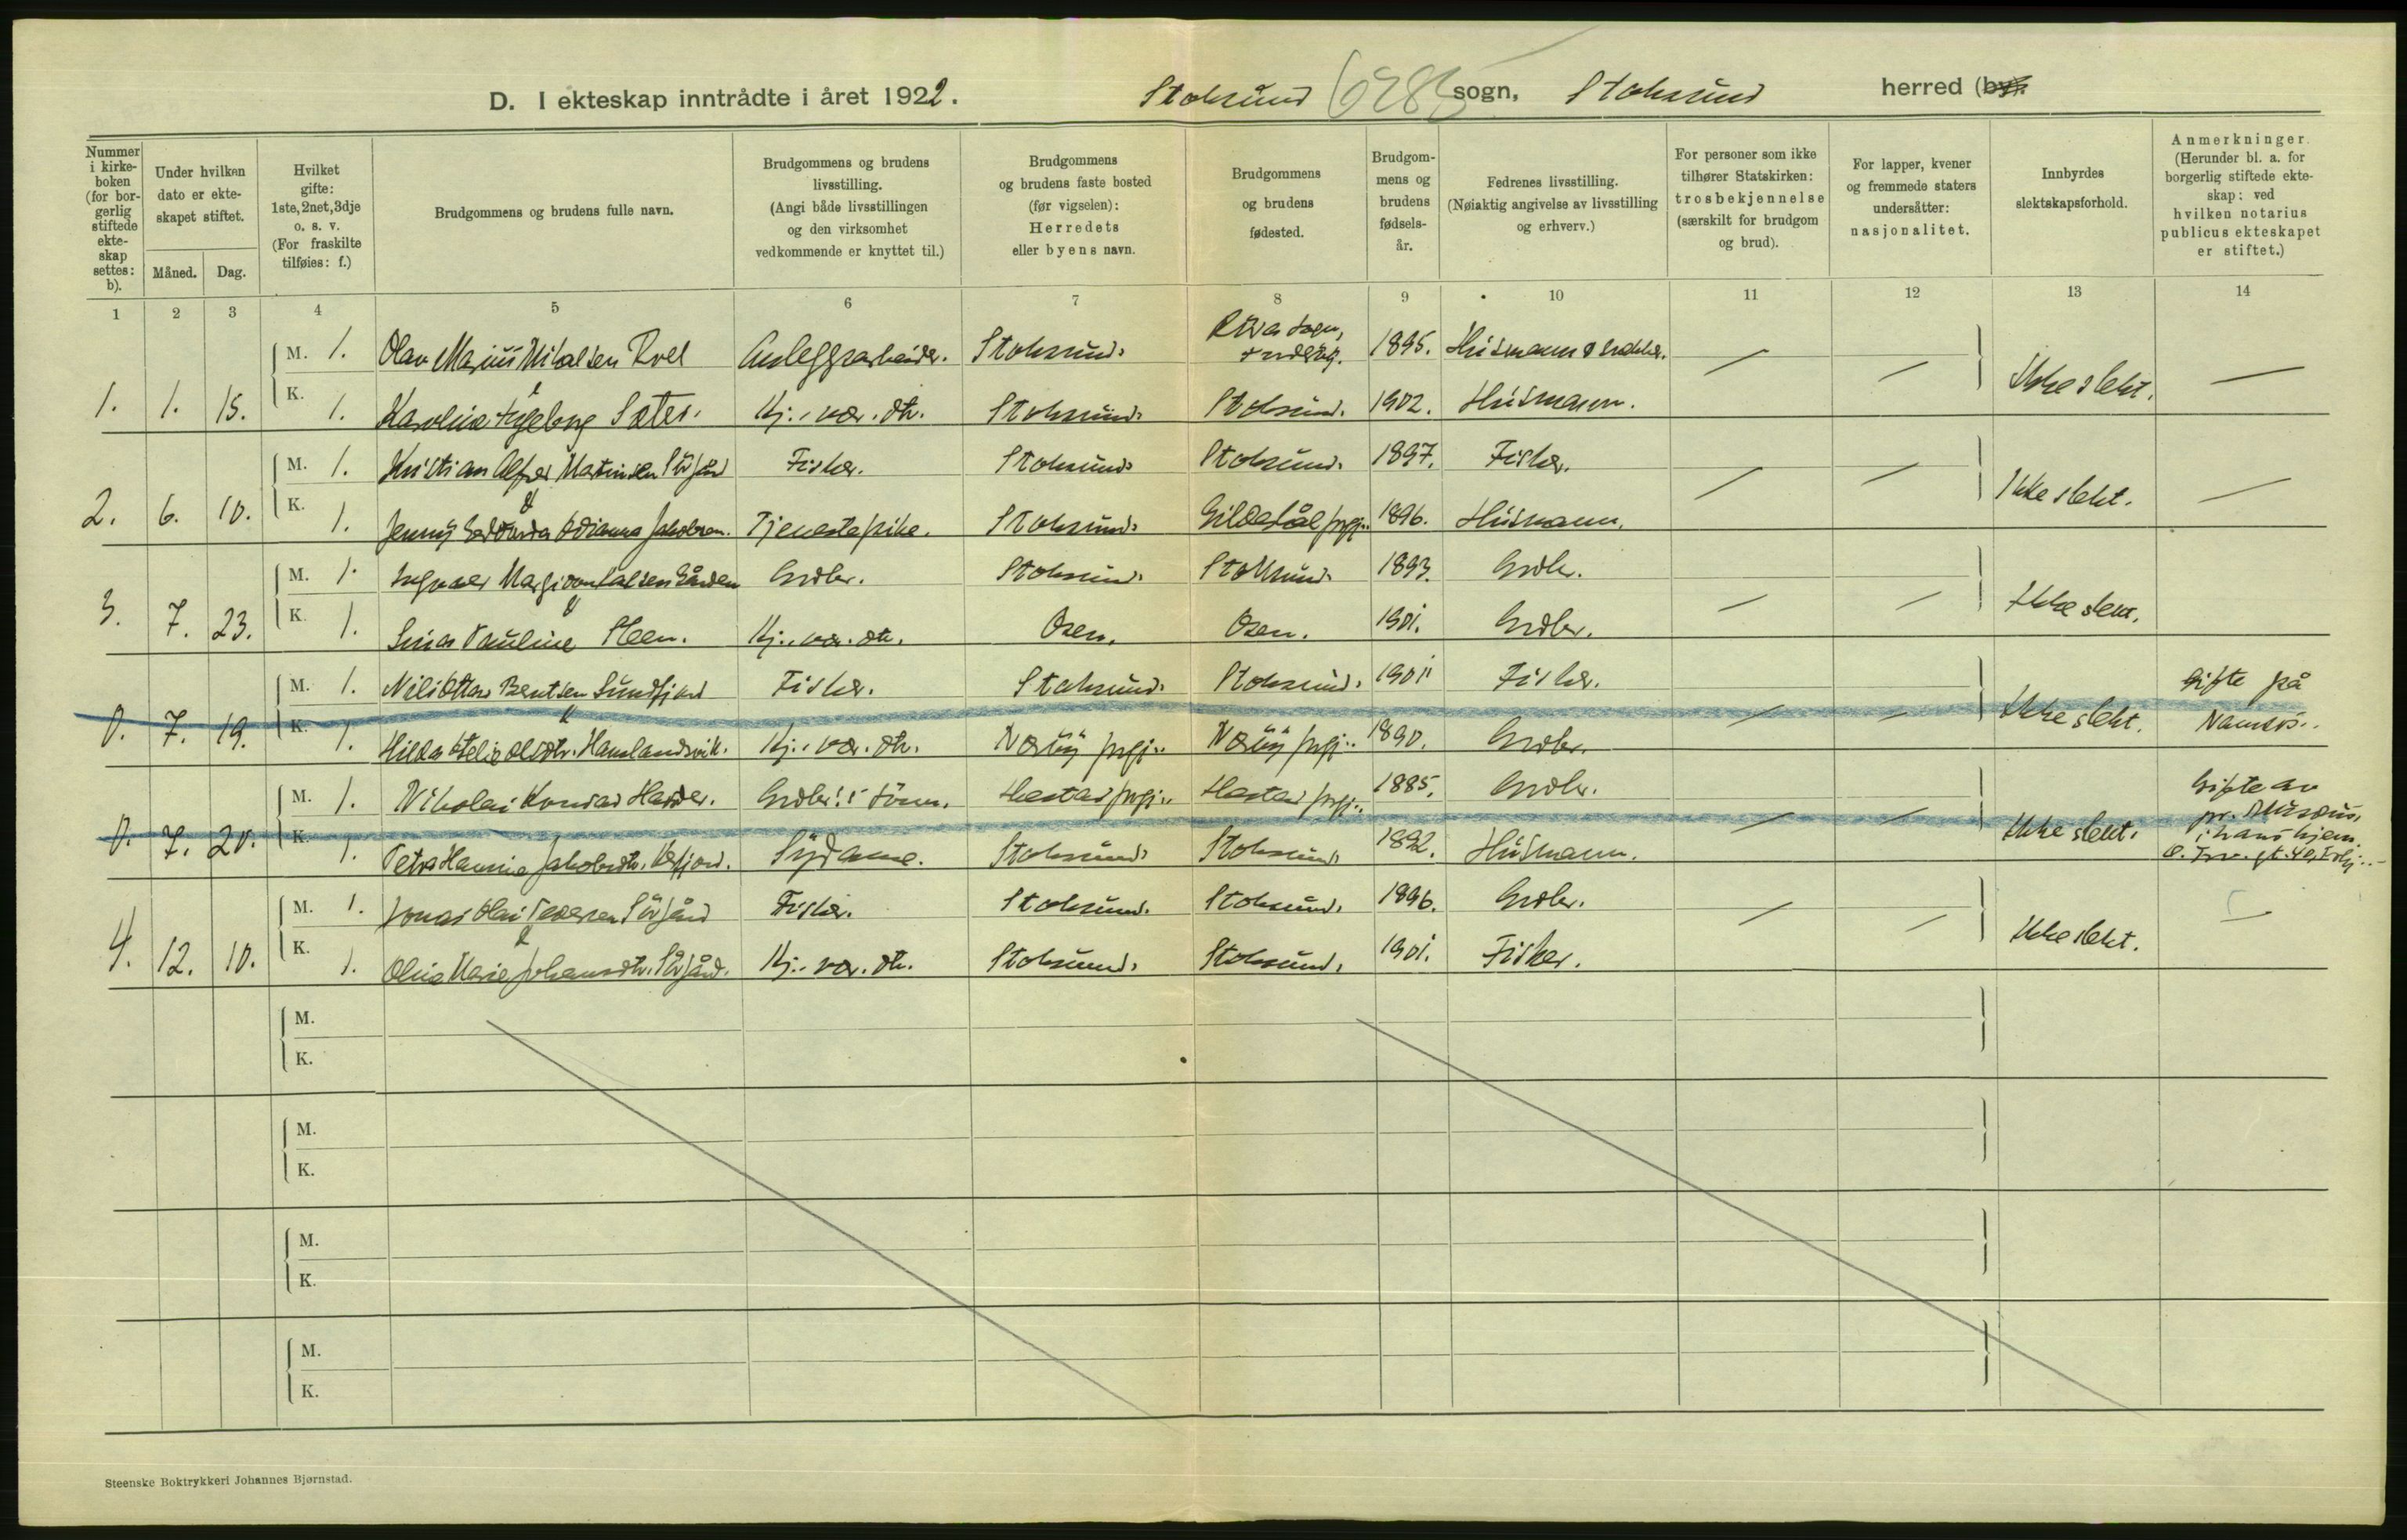 D. I ekteskap inntrådte i året 1922. Stoksund sogn, Stoksund herred (by).
Nummer i kirkeboken (for borgerlig stiftede ekteskap settes: b).
Under hvilken dato er ekteskapet stiftet.
Måned. Dag.
Hvilket gifte: 1ste, 2net, 3dje o. s. v. (For fraskilte tilføies: f.)
Brudgommens og brudens fulle navn.
Brudgommens og brudens livsstilling. (Angi både livsstillingen og den virksomhet vedkommende er knyttet til.)
Brudgommens og brudens faste bosted (før vigselen): Herredets eller byens navn.
Brudgommens og brudens fødested.
Brudgommens og brudens fødselsår.
Fedrenes livsstilling. (Nøiaktig angivelse av livsstilling og erhverv.)
For personer som ikke tilhører Statskirken: trosbekjennelse (særskilt for brudgom og brud).
For lapper, kvener og fremmede staters undersåtter: nasjonalitet.
Innbyrdes slektskapsforhold.
Anmerkninger. (Herunder bl. a. for borgerlig stiftede ekteskap: ved hvilken notarius publicus ekteskapet er stiftet.)
1 2 3 4 5 6 7 8 9 10 11 12 13 14
M. 1. Olav Anleggsarbeider. Stoksund. 1895. Husmann
1. 1. 15. K. 1. Karoline Ingeborg Sæter. Kj.: vær. dtr. Stoksund. Stoksund. 1902. Husmann. — — Ikke slekt. —
M. 1. Kristian Alfred Martinsen Sørgård Fisker. Stoksund. Stoksund. 1897. Fisker.
2. 6. 10. K. 1. Jenny Jakobsen. Tjenestepike. Stoksund. Gildeskål prgj.. 1896. Husmann. — — Ikke slekt. —
M. 1. Grdbr. Stoksund. Stoksund. 1893. Grdbr.
3. 7. 23. K. 1. Pauline Steen. Kj.. vær. dtr. Osen. Osen. 1901. Grdbr. — — Ikke slekt.
M. 1. Nils Ottar Bentsen Sundfjord Fisker. Stoksund. Stoksund. 1901 Fisker. Gifte på
0. 7. 19. K. 1. Hilda Kj.. vær. dtr. Nærøy prgj.. Nærøy prgj.. 1890. Grdbr. — — Ikke slekt. Namsos..
M. 1. Nikolai Konrad Grdbr. s sønn. prgj.. prgj.. 1885. Grdbr. Gifte av
0. 7. 20. K. 1. Petra Jakobsdtr. Sydame. Stoksund. Stoksund. 1892. Husmann. — — Ikke slekt. i hans hjem
M. 1. Jonas Olai Pedersen Sørgård Fisker. Stoksund. Stoksund. 1896. Grdbr.
4. 12. 10. K. 1. Marie Johansdtr. Sørgård. Kj.. vær. dtr. Stoksund. Stoksund. 1901. Fisker. — — Ikke slekt. —
M.
K.
M.
K.
M.
K.
M.
K.
Steenske Boktrykkeri Johannes Bjørnstad.